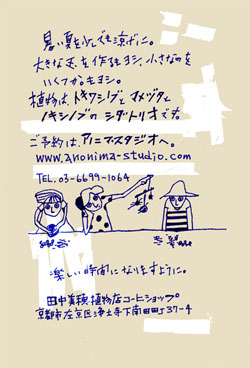 暑い夏を少しでも涼げに。
大きな玉を作るもヨシ、小さなのを
いくつかもヨシ。
植物は、トキワシダとマメヅタと
ノキシノブのシダトリオです。
ご予約は、アノニマスタジオへ。
www.anonima-studio.com
TEL.03-6699-1064
楽しい時間になりますように。
田中美穂植物店コーヒーショップ
京都市左京区浄土寺下南田町37-4